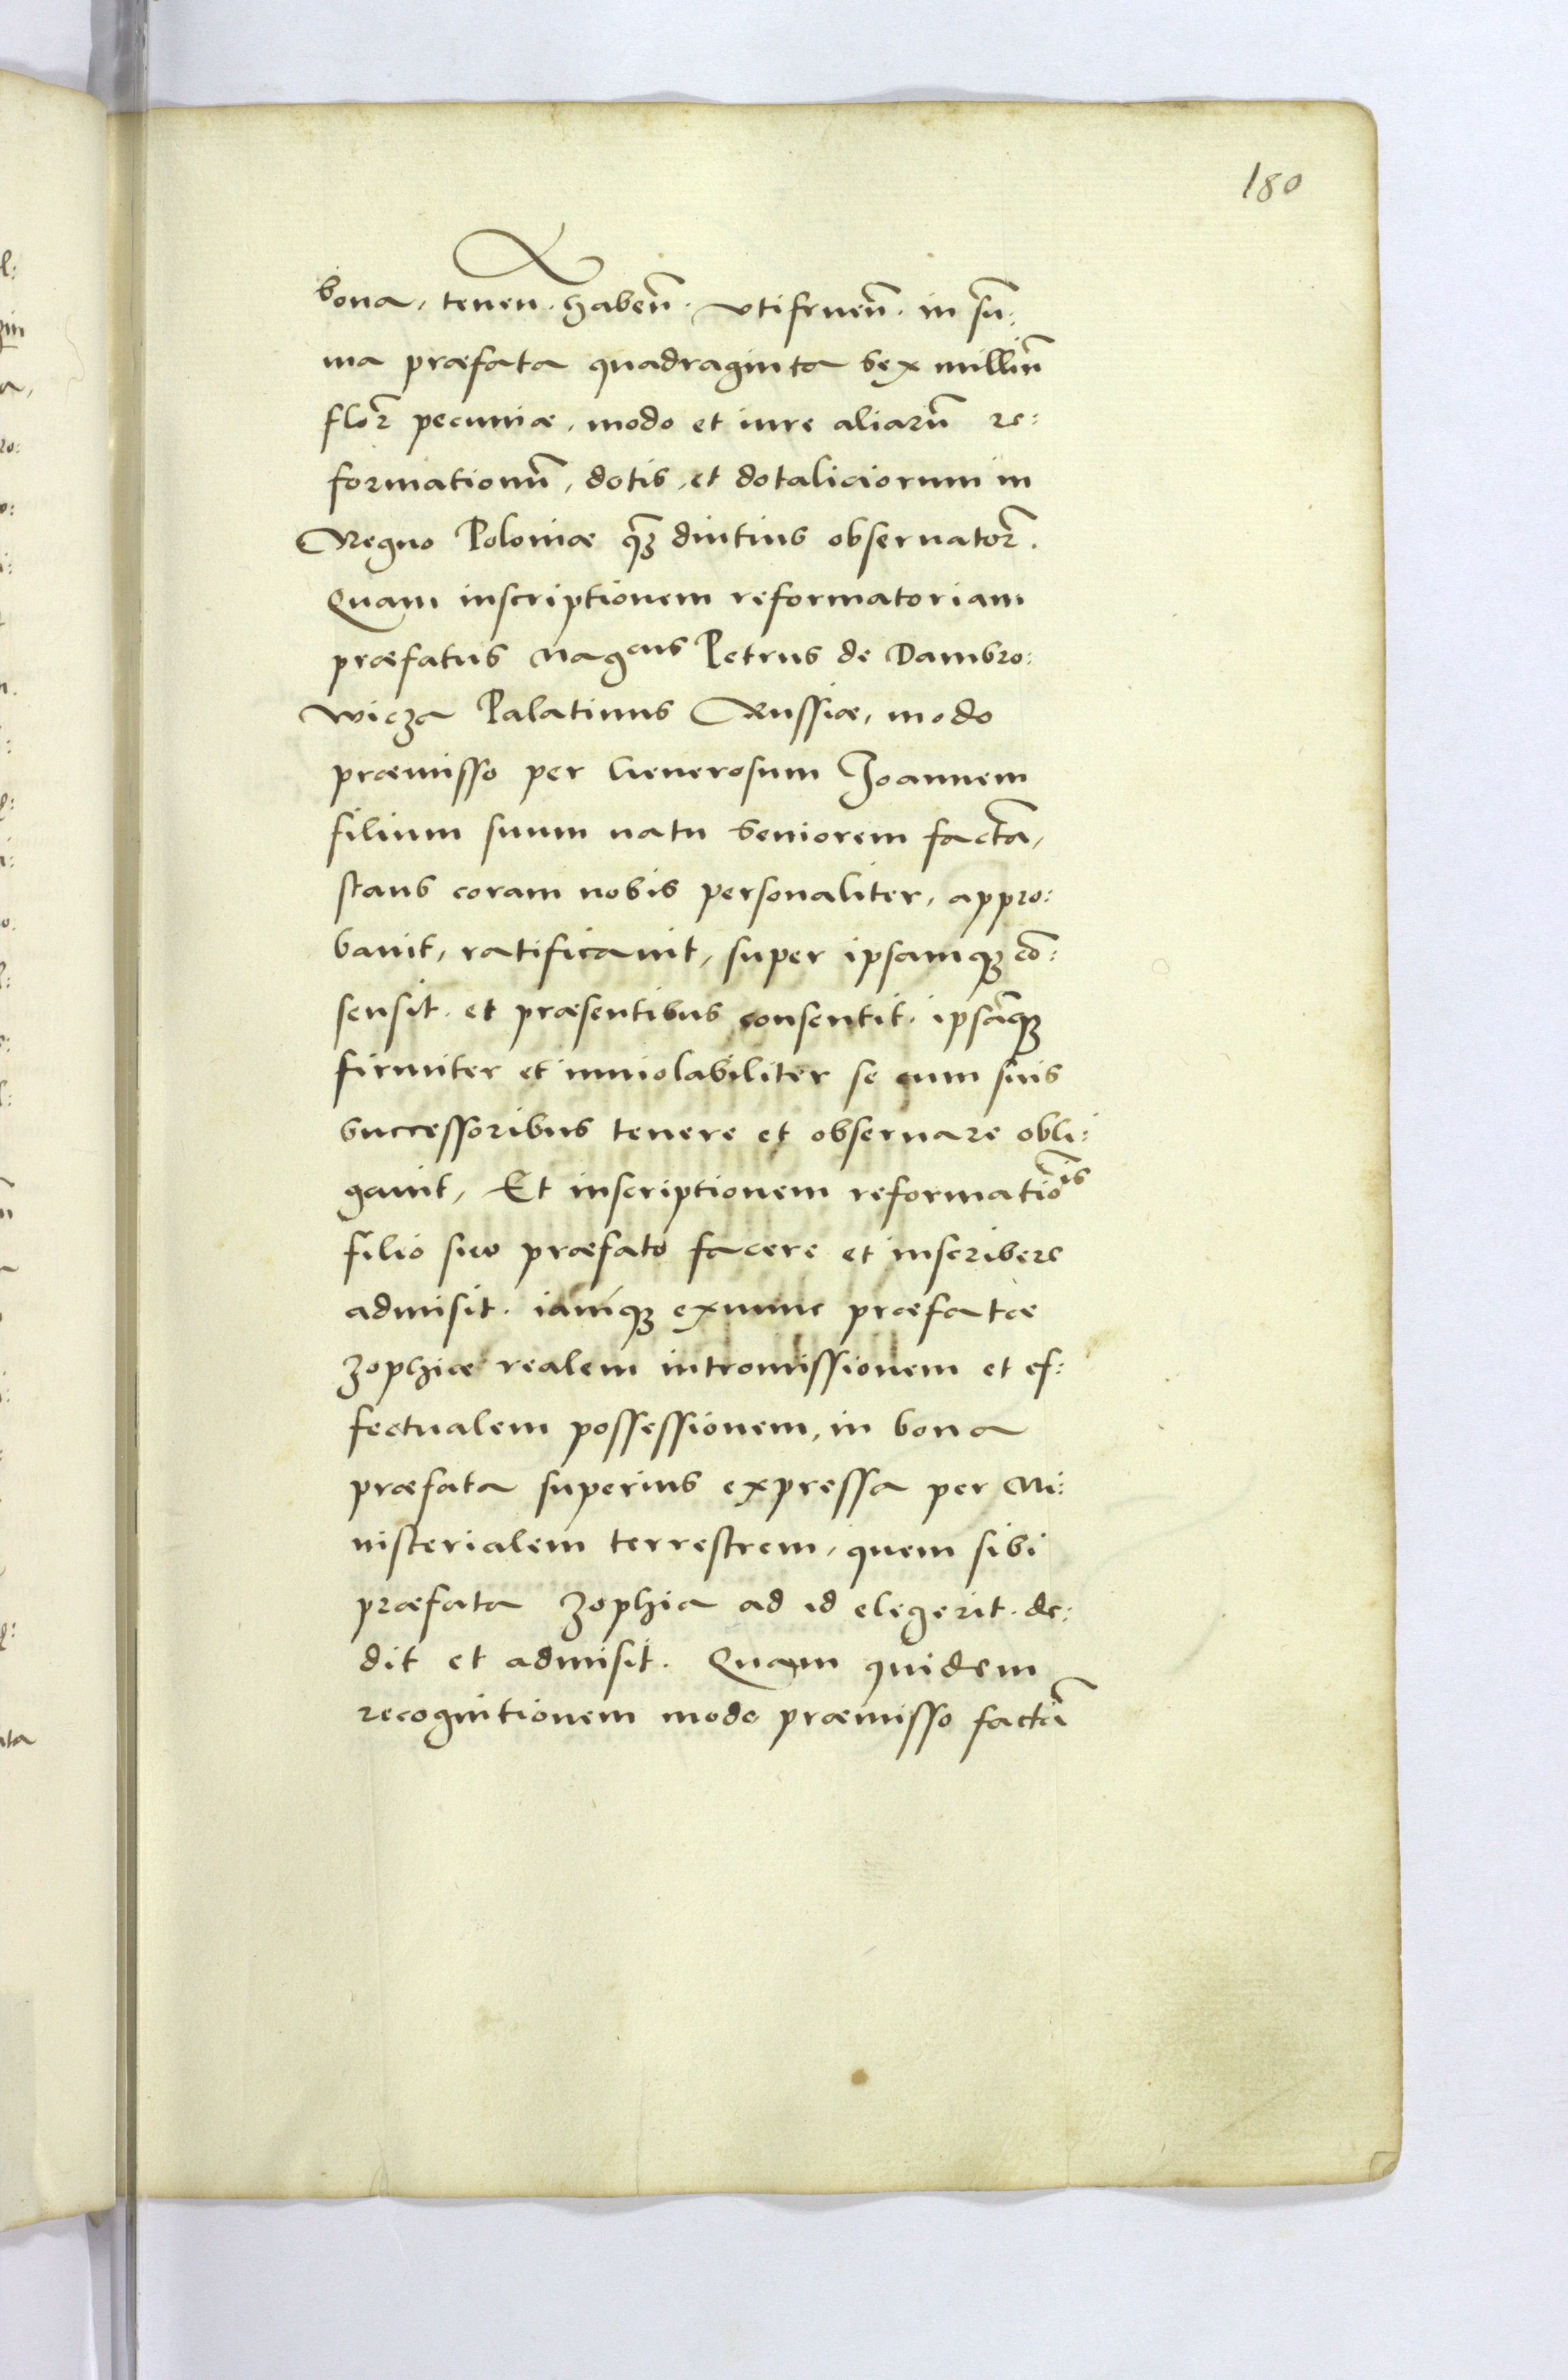 180
bona, tenen. habeñ. vtifrueñ. in sũ:
ma præfata quadraginta sex milliũ
florꝫ pecuniæ, modo et iure aliarũ re:
formationũ, dotis, et dotaliciorum in
Regno Poloniæ q̃ꝫ diutius obseruatorꝫ.
Quam inscriptionem reformatoriam
præfatus Magcus Petrus de Dambro:
wicza Palatinus Russiæ, modo
præmisso per Generosum Joannem
filium suum natu seniorem factã,
stans coram nobis personaliter, appro:
bauit, ratificauit, super ipsamqꝫ cõ:
sensit. et præsentibus consentit. ipsãqꝫ
firmiter et inuiolabiliter se cum suis
successoribus tenere et obseruare obli:
gauit, Et inscriptionem reformatiõis
filio suo præfato facere et inscribere
admisit. iamqꝫ exnunc præfatæ
Zophiæ realem intromissionem et ef:
fectualem possessionem, in bona
præfata superius expressa per Mi:
nisterialem terrestrem, quem sibi
præfata Zophia ad id elegerit. de:
dit et admisit. Quam quidem
recognitionem modo præmisso factã